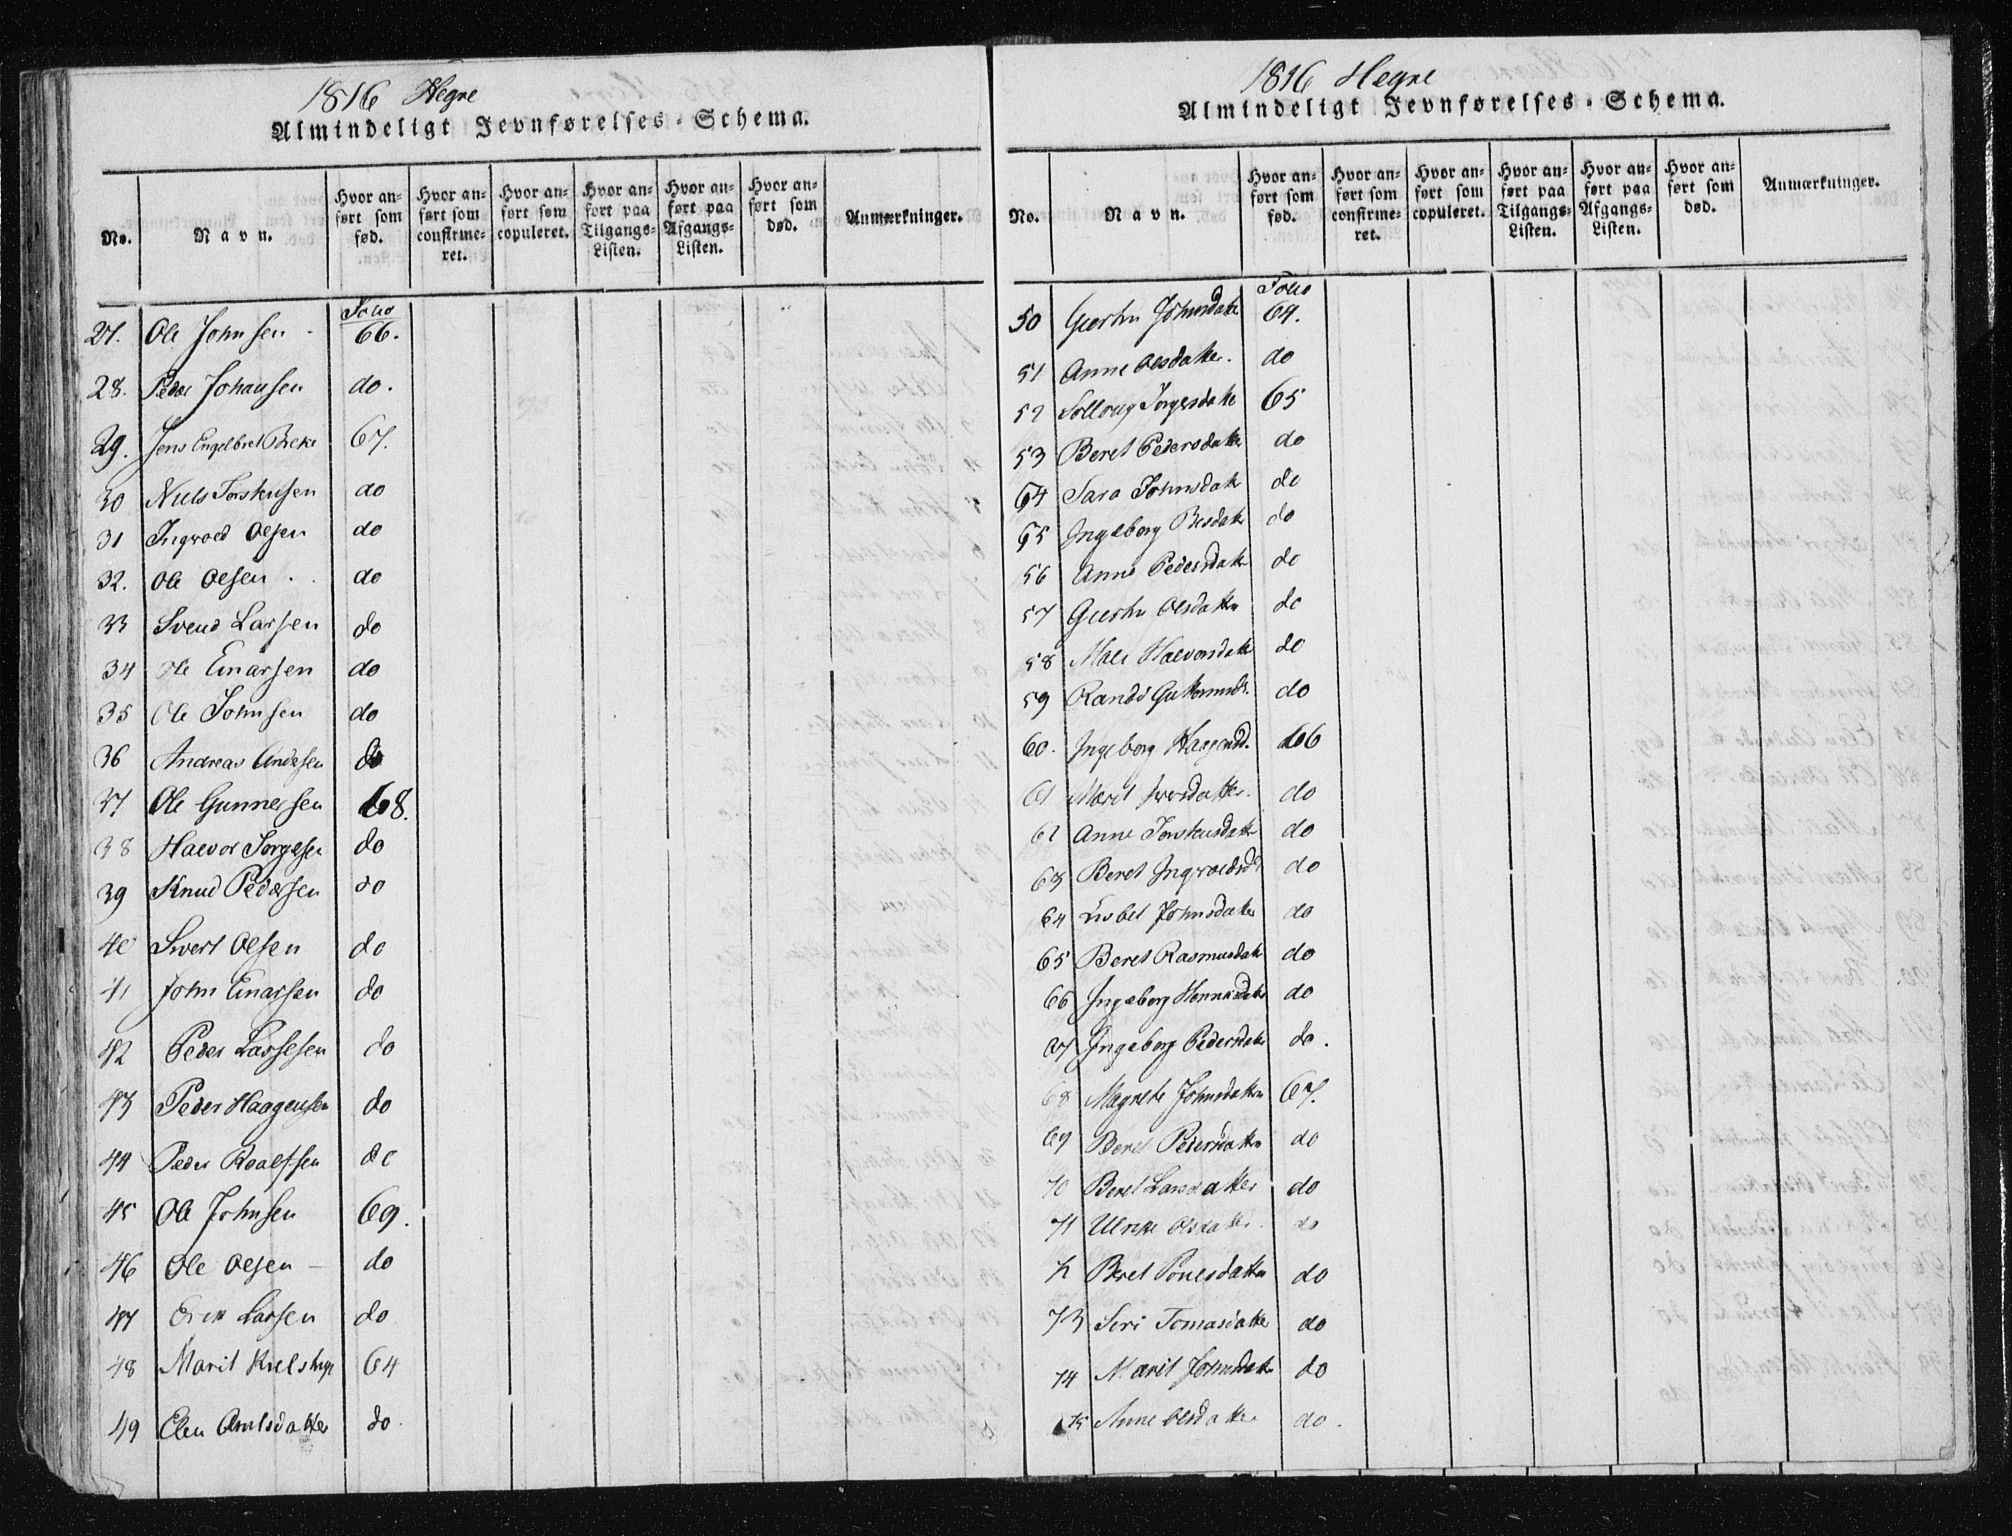 1816 Hegre
Almindeligt Jevnførelses-Schema.
No.
Navn.
Hvor anført som fød.
Hvor anført som confirmeret.
Hvor anført som copuleret.
Hvor anført paa Tilgangs-Listen.
Hvor anført paa Afgangs-Listen.
Hvor anført som død.
Anmærkninger.
Folio
27. Ole Johnsen 66.
28. Peder Johansen do.
29. Jens Engelbret 67.
30 Niels Torstensen do
31 Ingvold Olsen do
32. Ole Olsen do
33 Svend Larsen do
34 Ole Einarsen do
35 Ole Johnsen do
36 Andreas Andersen do
37 Ole Gunnersen 68.
38 Halvor Jørgesen do
39 Knud Pedersen do
40 Sivert Olsen do
41 John Einarsen do
42 Peder Lassesen do
43 Peder Haagensen do
44 Peder Roalfsen do
45 Ole Johnsen 69.
46 Ole Olsen do
47 Erik Larsen do
48 Marit 64
49 Elen Arntsdatter do
1816 Hegre
Almindeligt Jevnførelses-Schema.
No.
Navn.
Hvor anført som fød.
Hvor anført som confirmeret.
Hvor anført som copuleret.
Hvor anført paa Tilgangs-Listen.
Hvor anført paa Afgangs-Listen.
Hvor anført som død.
Anmærkninger.
Folio
50 Giertru Johnsdatter 64.
51 Anne Olsdatter. do
52 Sollvug Jørgesdatte 65
53 Beret Pedersdatte do
54 Sara Johnsdatte do
55 Ingeborg do
56 Anne Pedersdatte do
57 Giertru Olsdatter do
58 Mali Halvorsdatte do
59 Randi Guttormsd. do
60. Ingeborg Haagensd. 66
61 Marit Iversdatter. do
62 Anne Torstensdatte do
63 Beret Ingvoldsd do
64 Lisbet Johnsdatter do
65 Beret Rasmusdatte do
66 Ingeborg do
67 Ingeborg Pedersdatte do.
68 Magrete Johnsdatter 67.
69 Beret Pedersdatter do
70 Beret Larsdatter do
71 Ulrike Olsdatter do
72 Beret Povelsdatter do
73 Siri Tomasdatter do
74 Marit Johnsdatte do
75 Anne Olsdatter do.